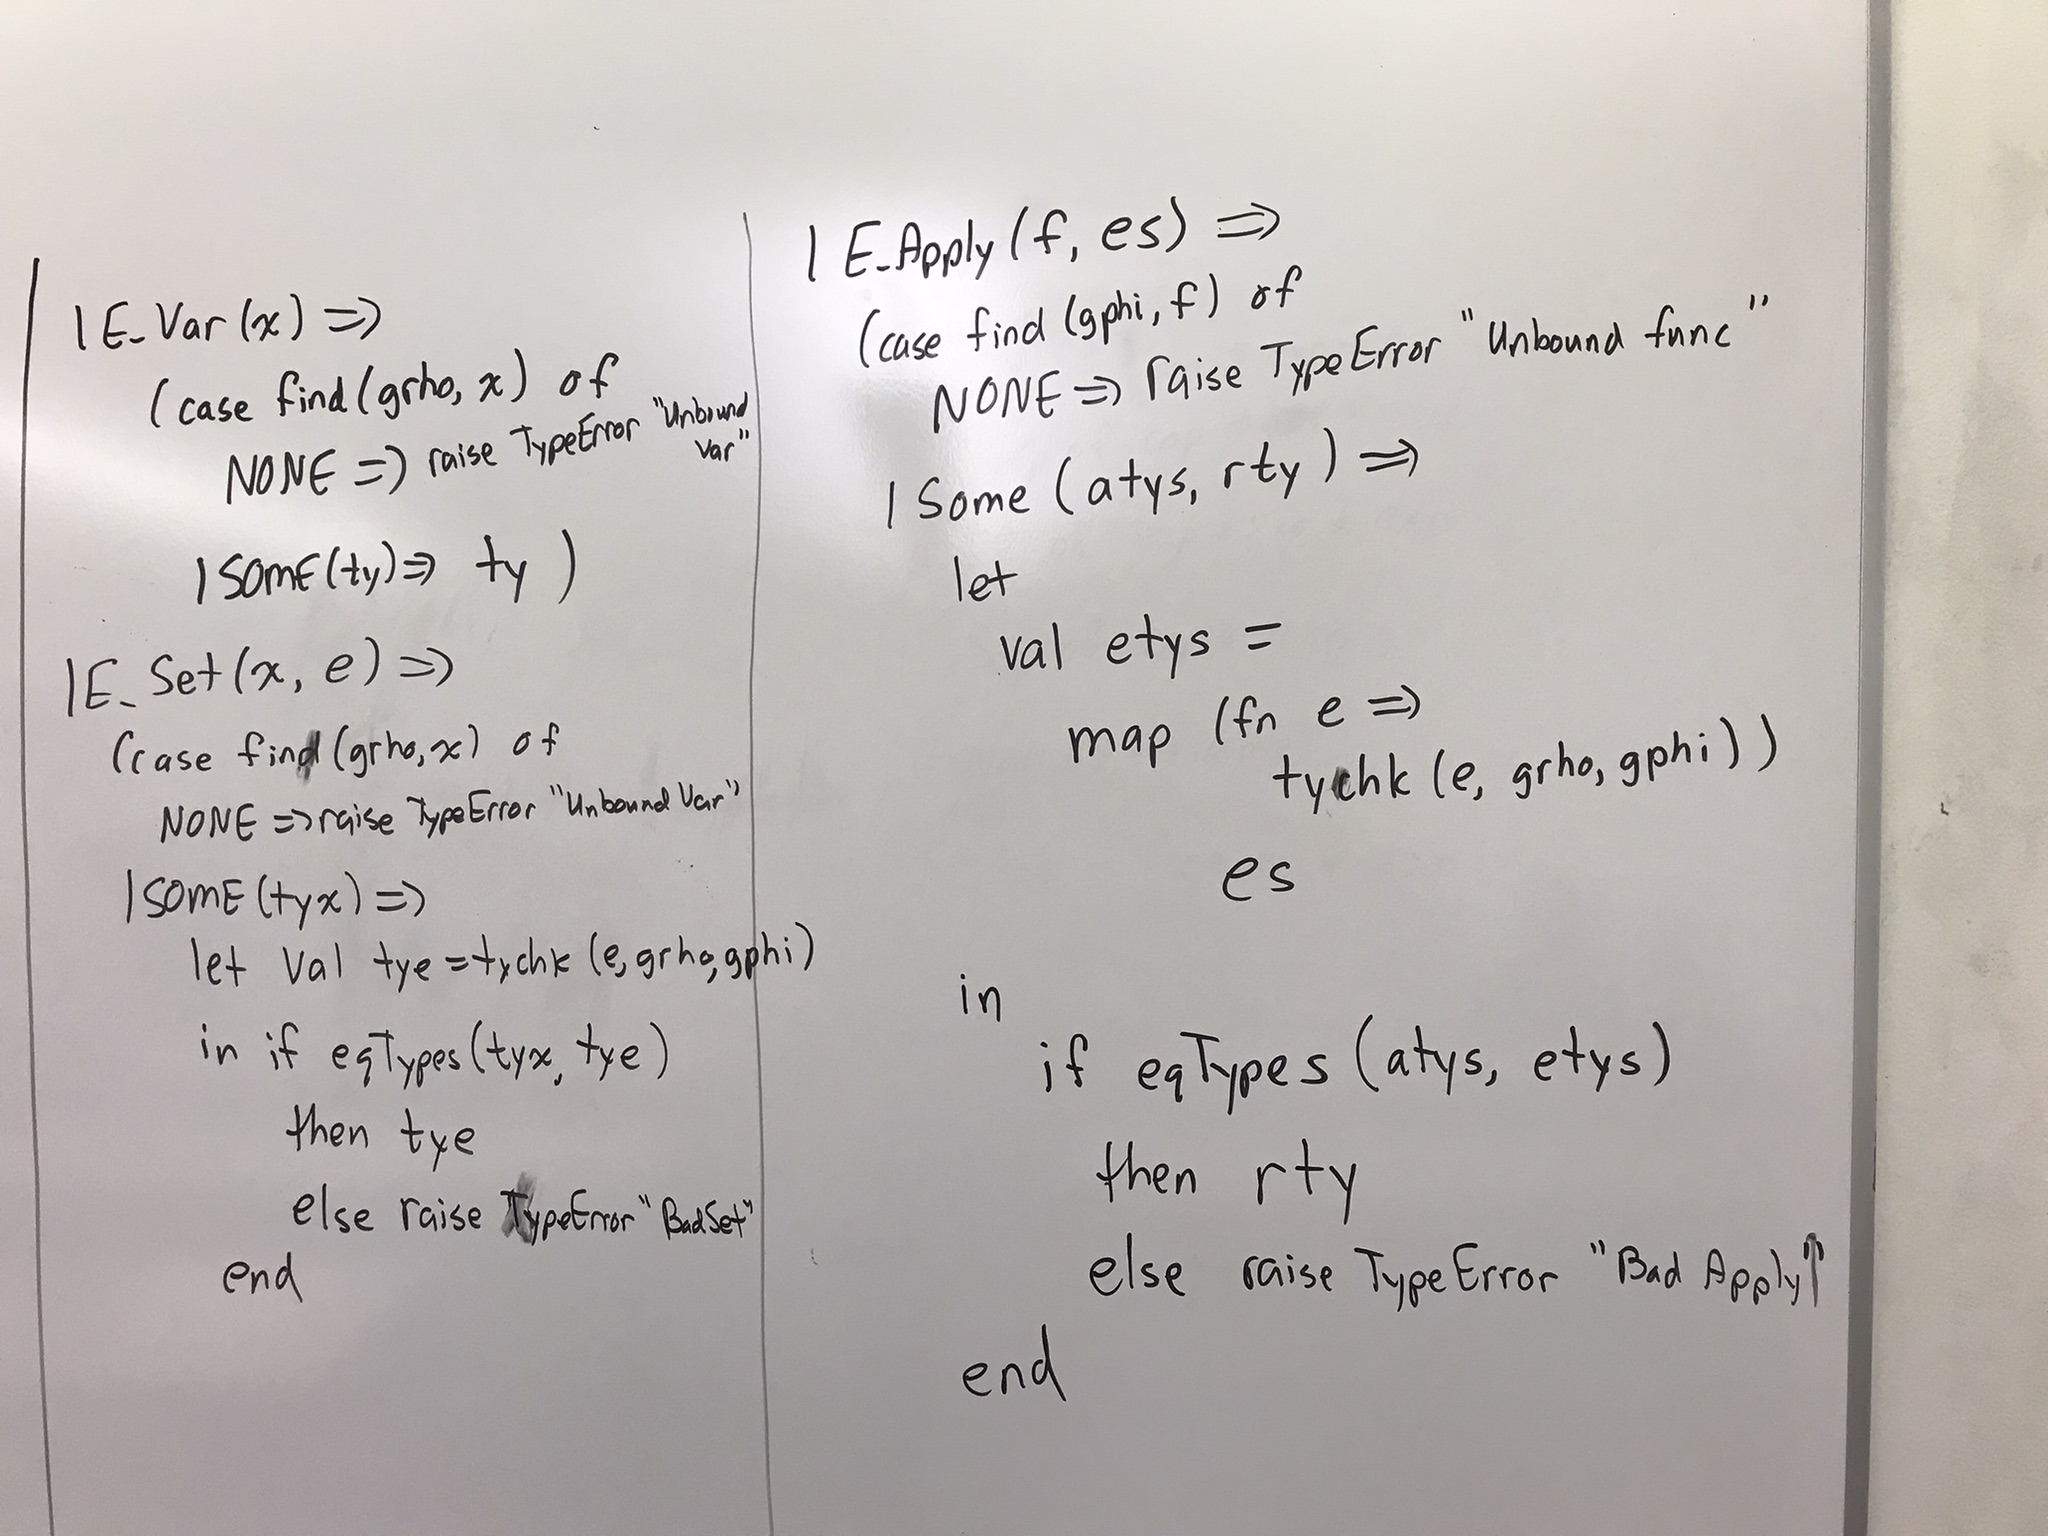 | E_Var (x) =>
(case find (grho, x) of
NONE => raise TypeError "Unbound
Var"
| SOME (ty) => ty )
| E_Set (x, e) =>
(case find (grho, x) of
NONE => raise TypeError "Unbound Var"
| SOME (tyx) =>
let val tye = tychk (e, grho, gphi)
in if eqTypes (tyx, tye)
then tye
else raise TypeError "BadSet"
end
| E_Apply (f, es) =>
(case find (gphi, f) of
NONE => raise TypeError "Unbound func"
| Some (atys, rty) =>
let
val etys =
map (fn e =>
tychk (e, grho, gphi))
es
in
if eqTypes (atys, etys)
then rty
else raise TypeError "Bad Apply"
end